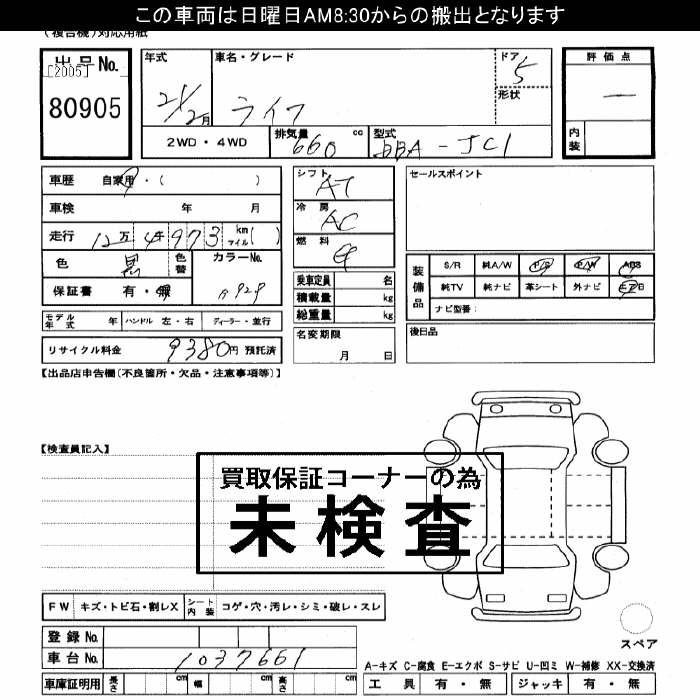 この車両は日曜日AM8:30からの搬出となります
(複合機)対応用紙
出品No.
[2005]
80905
年式
21/2月
車名・グレード
ライフ
ドア
5
形状
評価点
―
内装
2WD・4WD
排気量
660 cc
型式
DBA-JC1
車歴 自家用・( )
車検 年 月
走行 12万4千973 km マイル( )
色 黒 色替
カラーNo.
保証書 有・無
モデル年式 年 ハンドル 左・右 ディーラー・並行
リサイクル料金 9380円 預託済
シフト
AT
冷房
AC
燃料
乗車定員 名
積載量 kg
総重量 kg
名変期限
月 日
セールスポイント
装備品
S/R 純A/W P/S P/W ABS
純TV 純ナビ 革シート 外ナビ
ナビ型番:
後日品
【出品店申告欄(不良箇所・欠品・注意事項等)】
【検査員記入】
買取保証コーナーの為
未検査
FW キズ・トビ石・割レX シート内装 コゲ・穴・汚レ・シミ・破レ・スレ
登録No.
車台No. 1037661
車庫証明用 長さ cm 幅 cm 高さ cm
スペア
A-キズ C-腐食 E-エクボ S-サビ U-凹ミ W-補修 XX-交換済
工具 有・無 ジャッキ 有・無